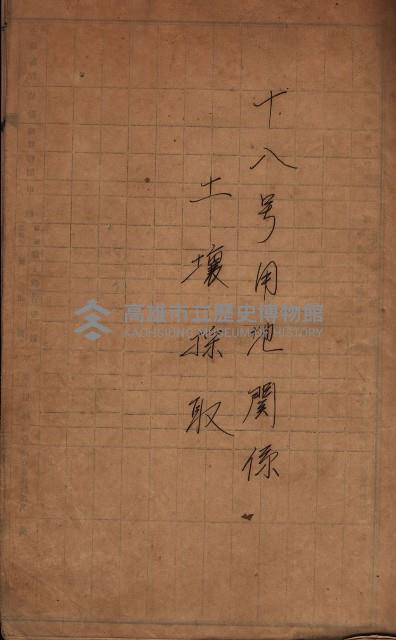 十八号用地関係
土壌採取
高雄市立歷史博物館
KAOHSIUNG MUSEUM OF HISTORY